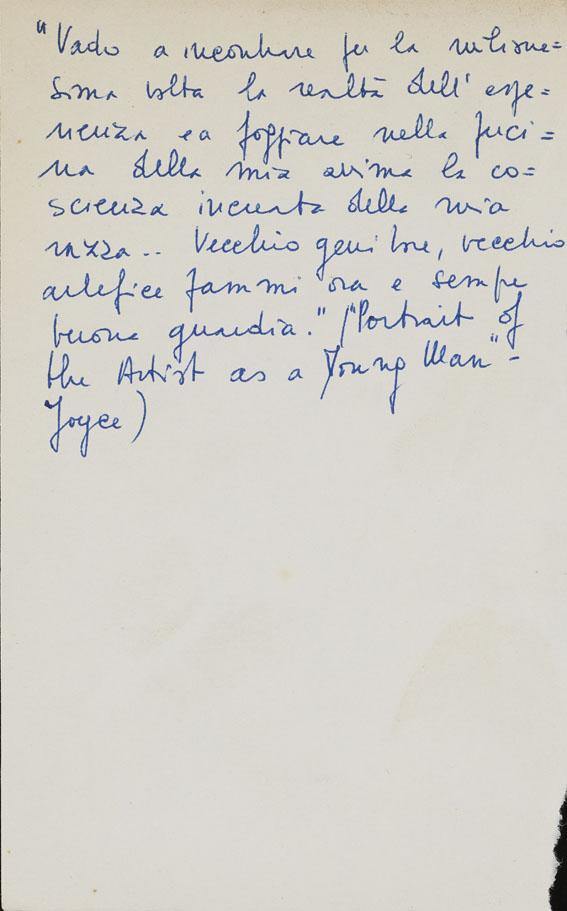 "Vado a incontrare per la milione=
sima volta la realtà dell' espe=
rienza e a foggiare nella fuci=
na della mia anima la co=
scienza increata della mia
razza.. Vecchio genitore, vecchio
artefice fammi ora e sempre
buona guardia." ("Portrait of
the Artist as a Young Man" -
Joyce)